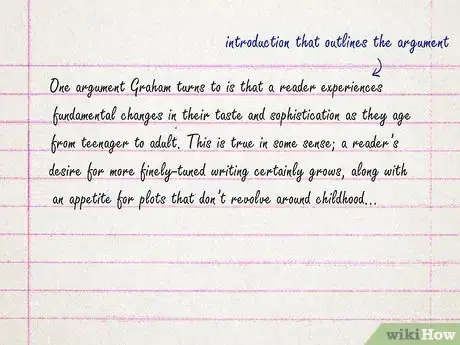 introduction that outlines the argument
One argument Graham turns to is that a reader experiences
fundamental changes in their taste and sophistication as they age
from teenager to adult. This is true in some sense; a reader's
desire for more finely-tuned writing certainly grows, along with
an appetite for plots that don't revolve around childhood...
wikiHow